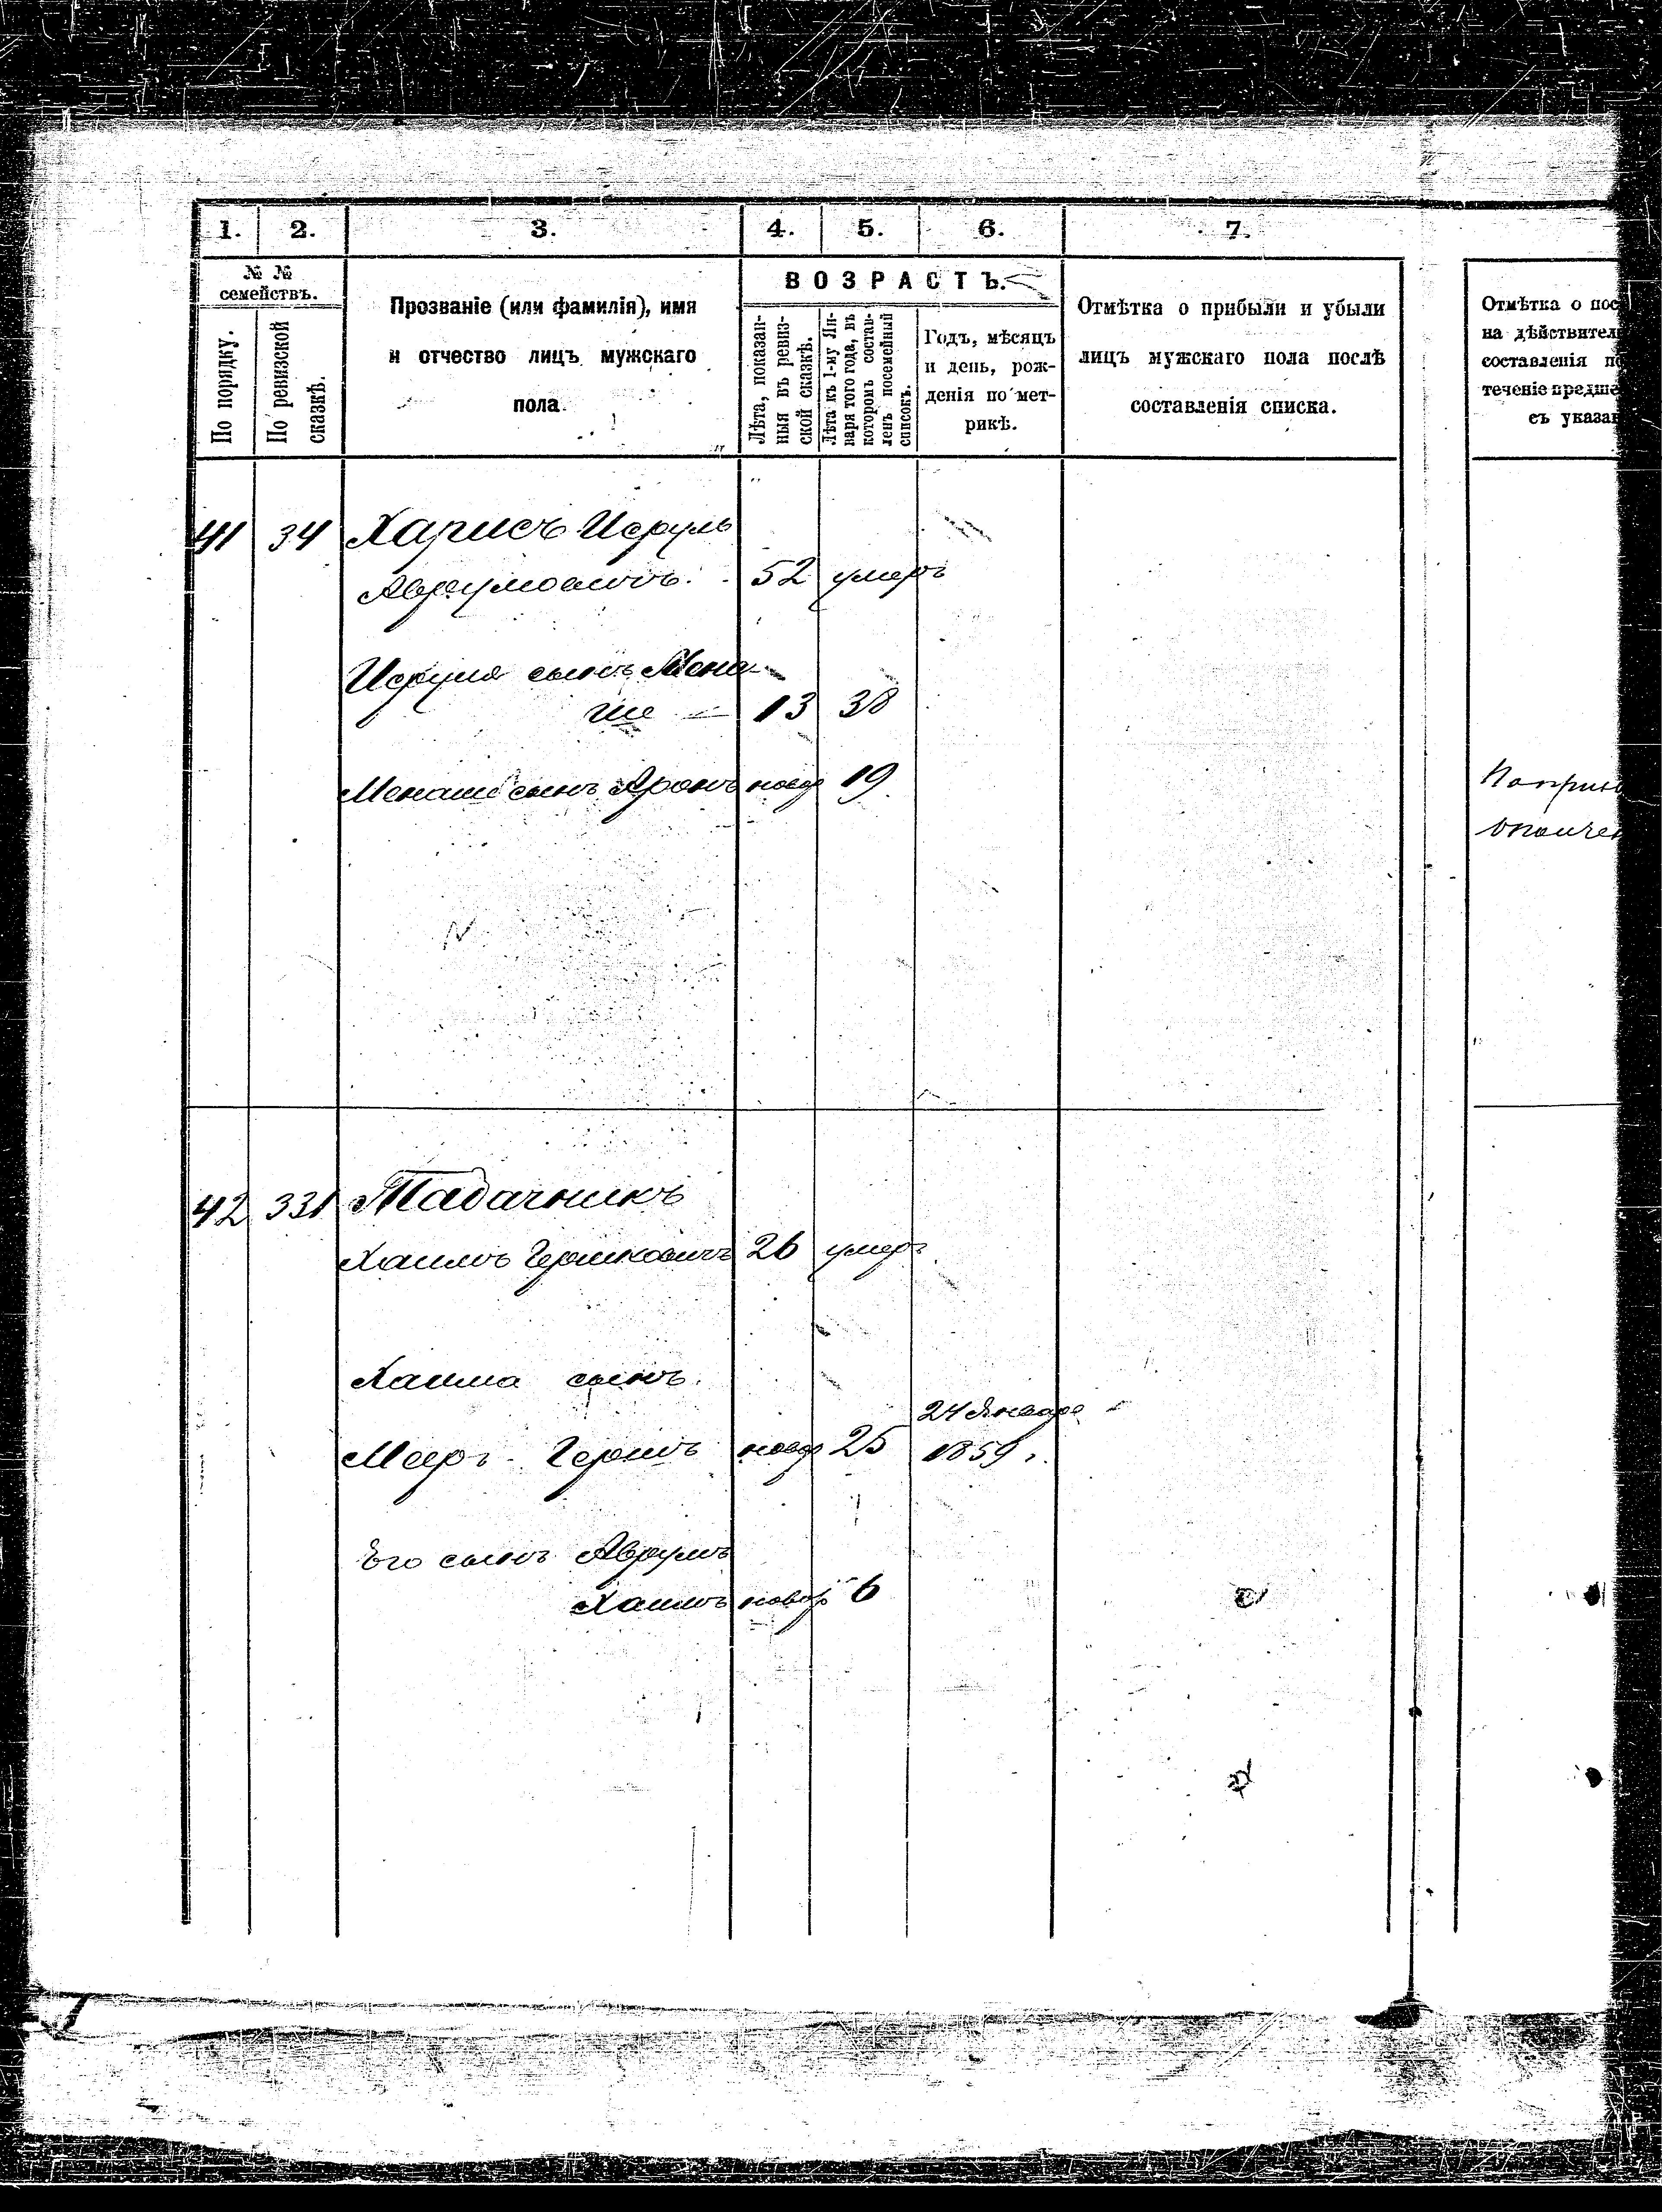 1. 2. 3. 4. 5. 6. 7.
№ №
семействъ.
По порядку.
По ревизской
сказкѣ.
Прозваніе (или фамилія), имя
и отчество лицъ мужскаго
пола.
ВОЗРАСТЪ.
Лѣта, показан-
ныя въ ревиз-
ской сказкѣ.
Лѣта къ 1-му Ян-
варя того года, въ
которомъ состав-
ленъ посемейный
списокъ.
Годъ, мѣсяцъ
и день, рож-
денія по мет-
рикѣ.
Отмѣтка о прибыли и убыли
лицъ мужскаго пола послѣ
составленія списка.
Отмѣтка о пос
на дѣйствител
составленія по
теченіе предше
съ указан
41 34 Харисъ Исруль
Аврумовичъ. 52 умеръ
Исруля сынъ Мена-
ше 13 38
Менаше сынъ Аронъ новор 19
42 331 Табачникъ
Хаимъ Гершковичъ 26 умеръ
Хаима сынъ
24 Января
Мееръ-Гершъ новор 25 1859 г.
Его сынъ Аврумъ
Хаимъ новор 6